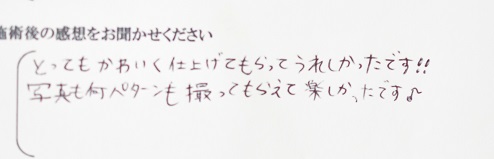 施術後の感想をお聞かせください
とってもかわいく仕上げてもらってうれしかったです!!
写真も何パターンも撮ってもらえて楽しかったです♪